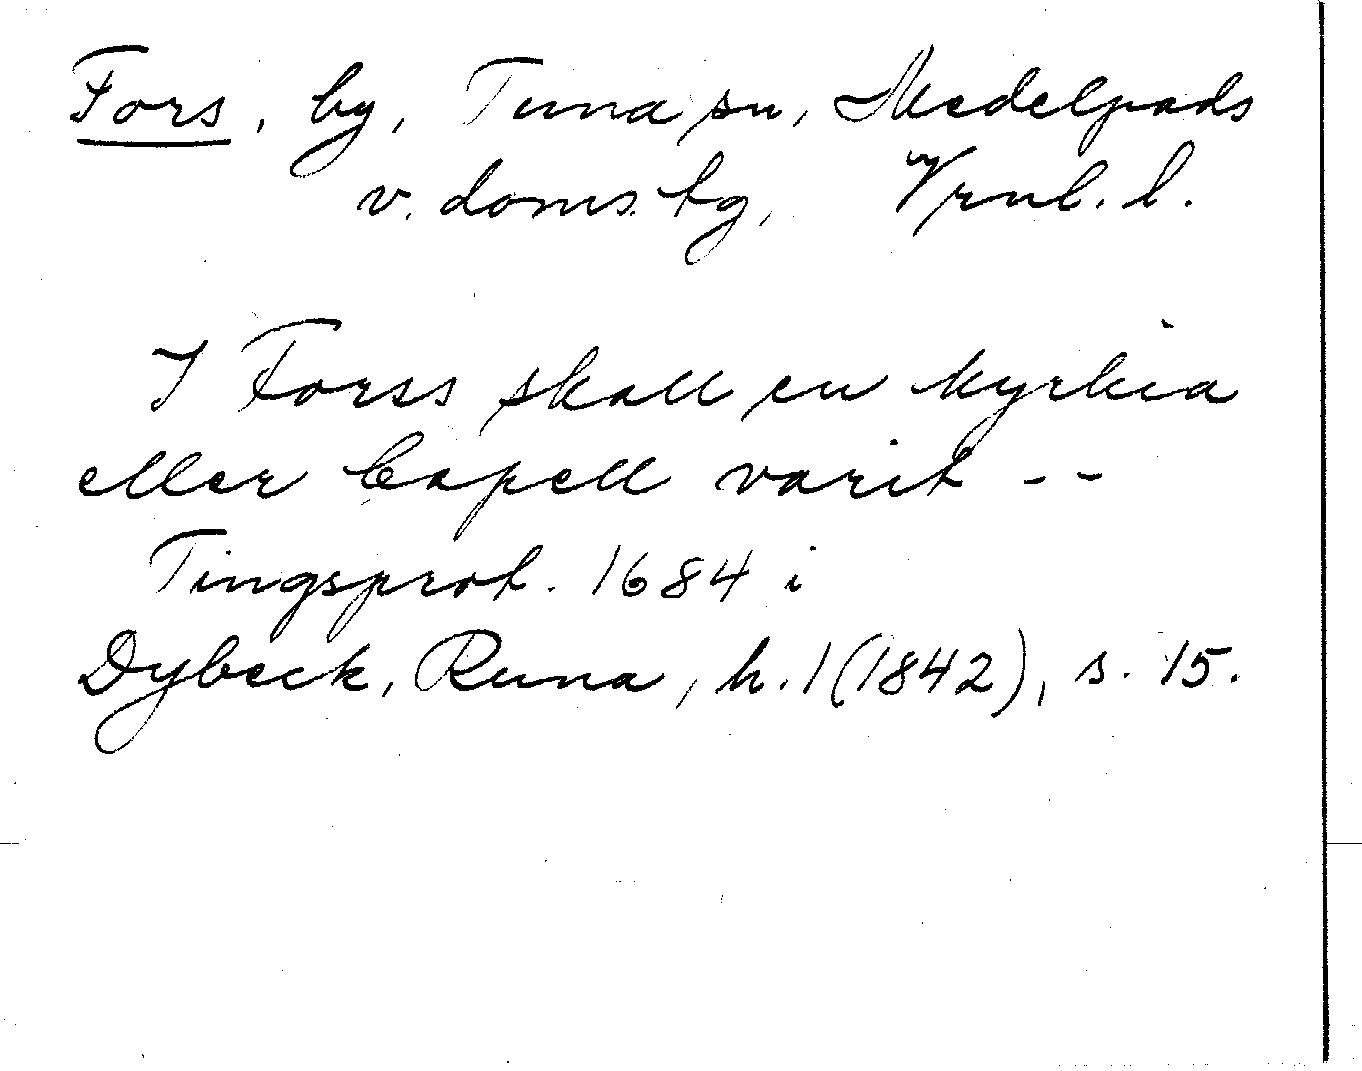 Fors, by, Tuna sn, Medelpads
v. doms. tg, Vrnl. l.
I Forss skall en kyrkia
eller Capell varit --
Tingsprot. 1684 i
Dybeck, Runa, h. 1 (1842), s. 15.